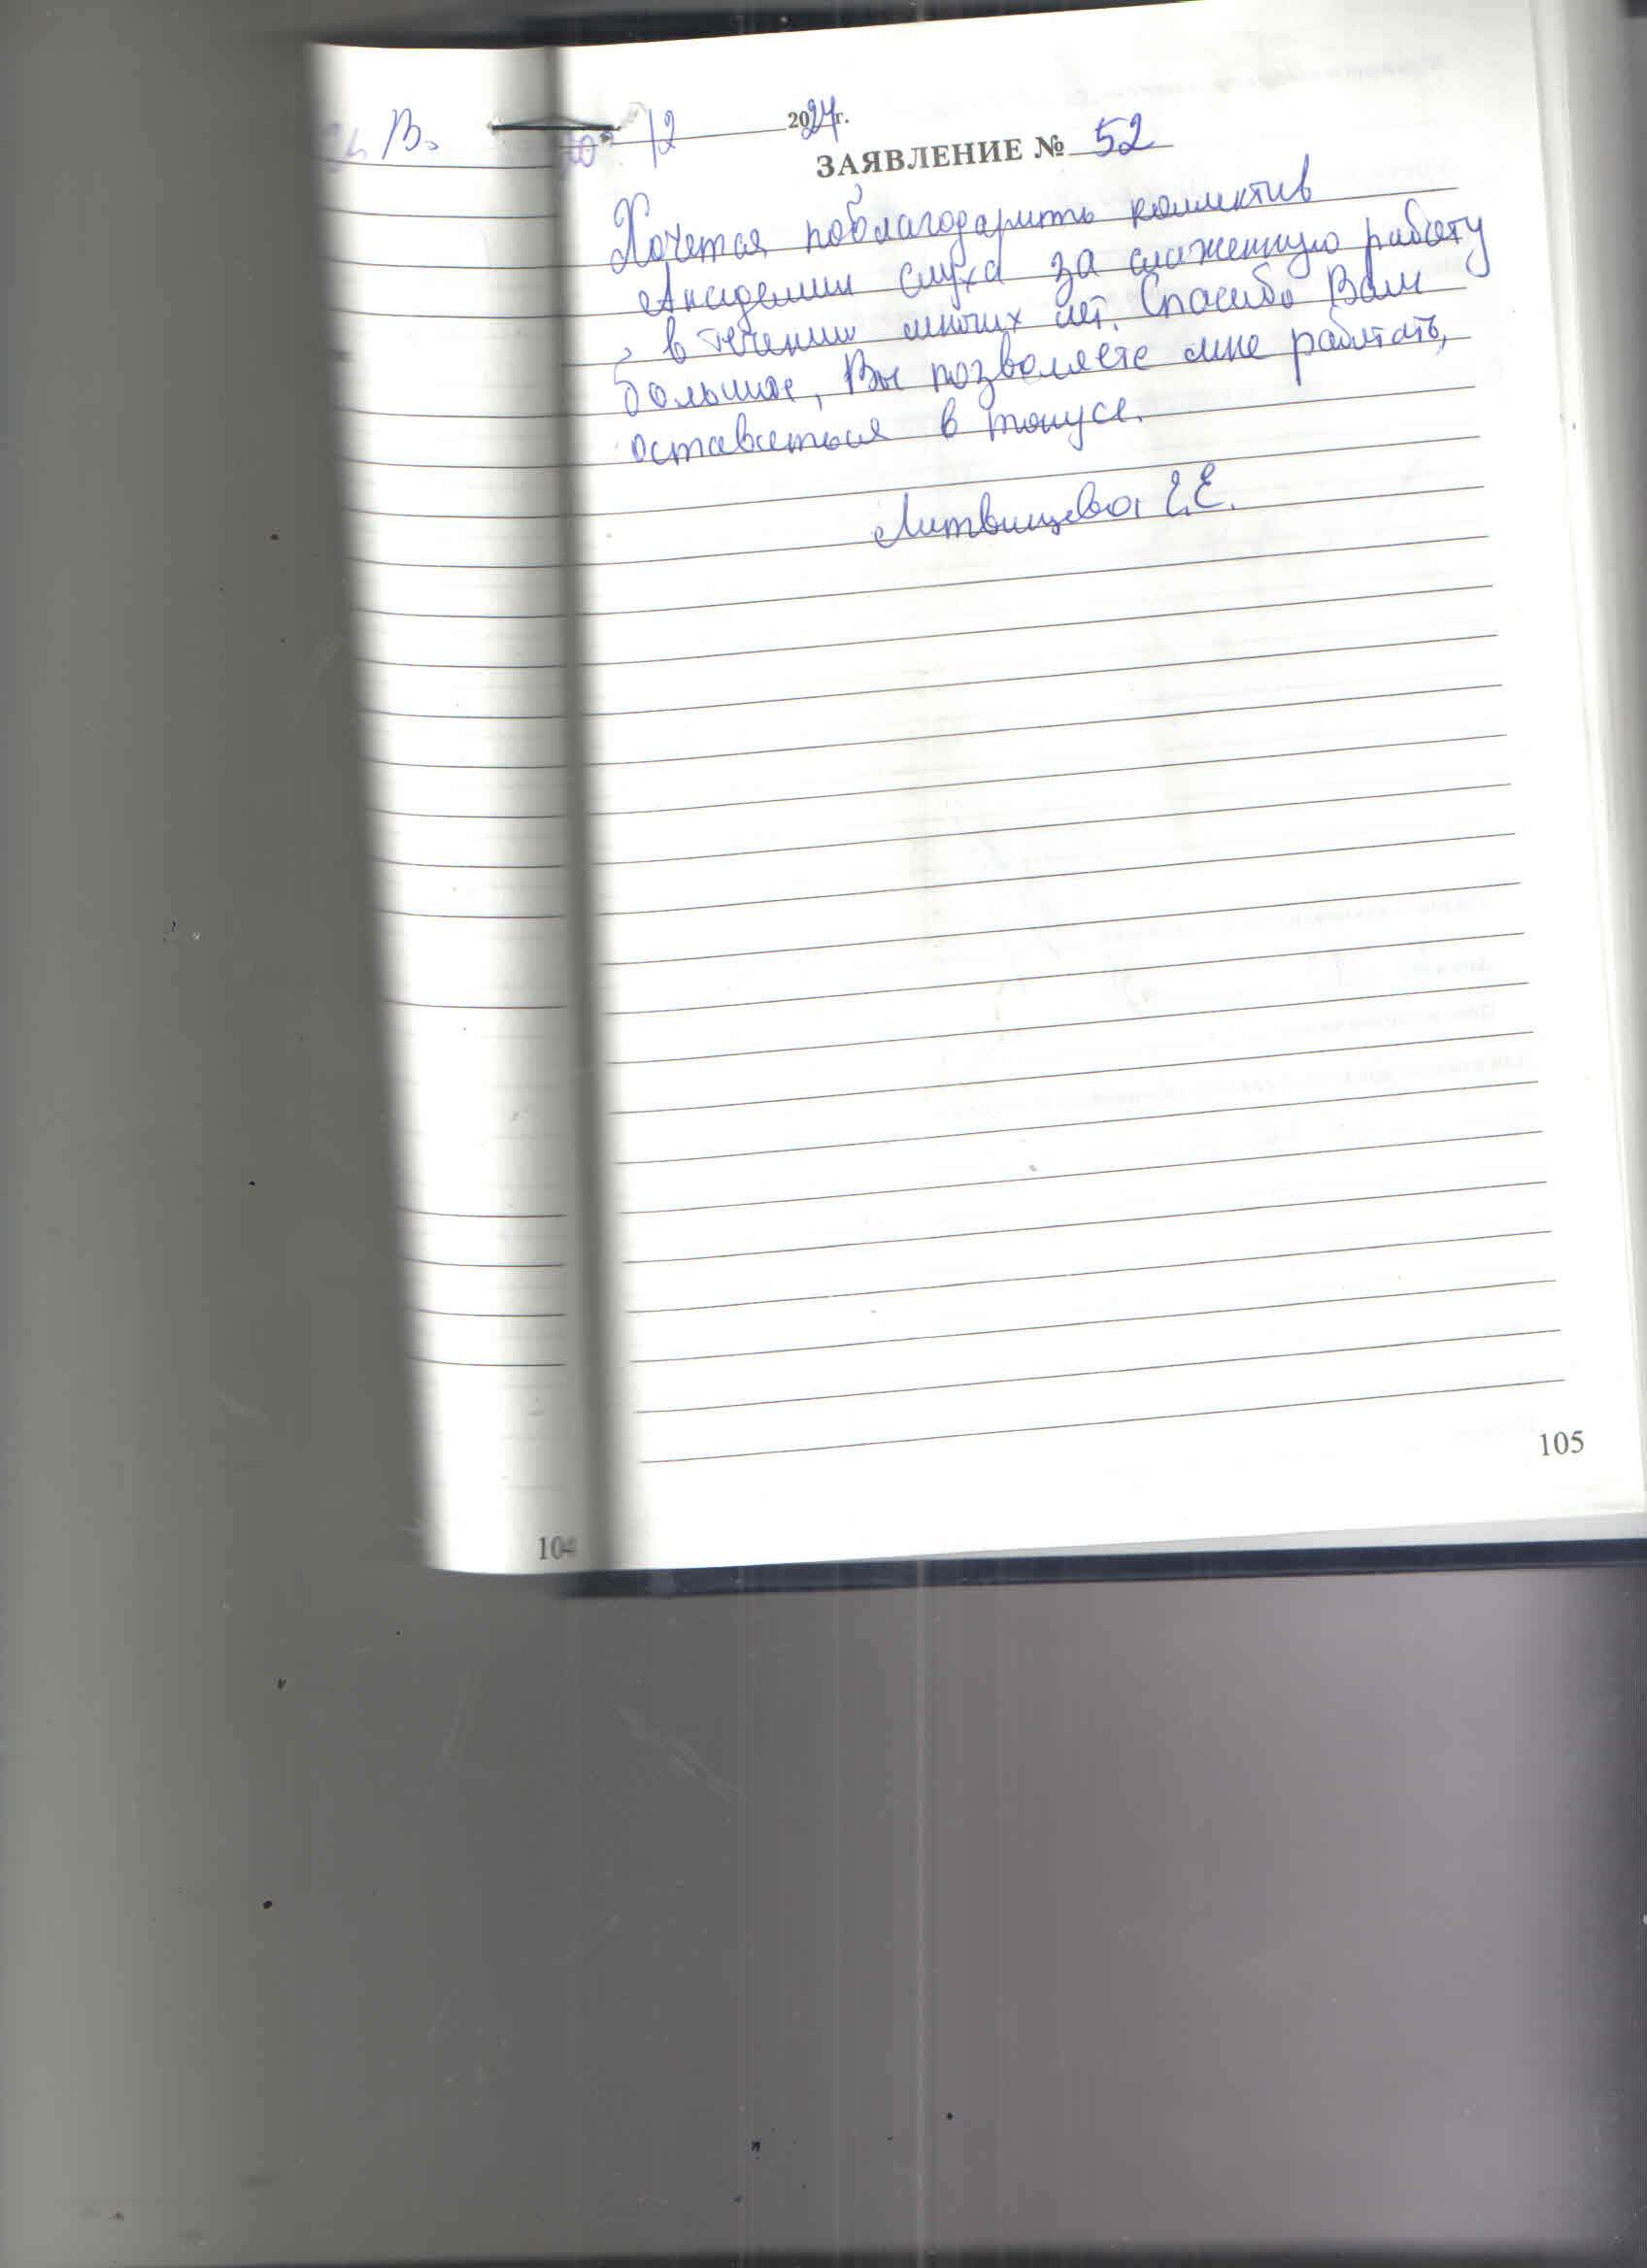 В.
12 2024г.
ЗАЯВЛЕНИЕ № 52
Хочется поблагодарить коллектив
Академии слуха за слаженную работу
в течении многих лет. Спасибо Вам
большое, Вы позволяете мне работать,
оставаться в тонусе.
Литвинцева Е.Е.
105
104